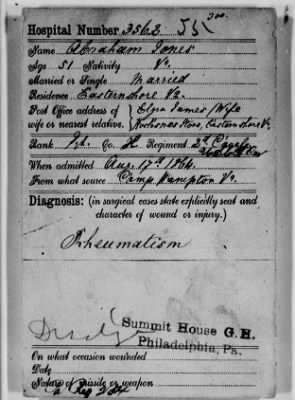 Hospital Number 3563
Name Abraham Jones
Age 51 Nativity Va.
Married or Single Married
Residence Eastern Shore Va.
Post Office address of wife or nearest relative. Wife Eastern Shore Va
Rank Pvt. Co. H Regiment 2d
When admitted Aug. 17th 1864.
From what source Camp Hampton Va.
Diagnosis: (in surgical cases state explicitly seat and
character of wound or injury.)
Rheumatism
Summit House G. H.
Philadelphia, Pa.
On what occasion wounded
Date
Nature of missile or weapon